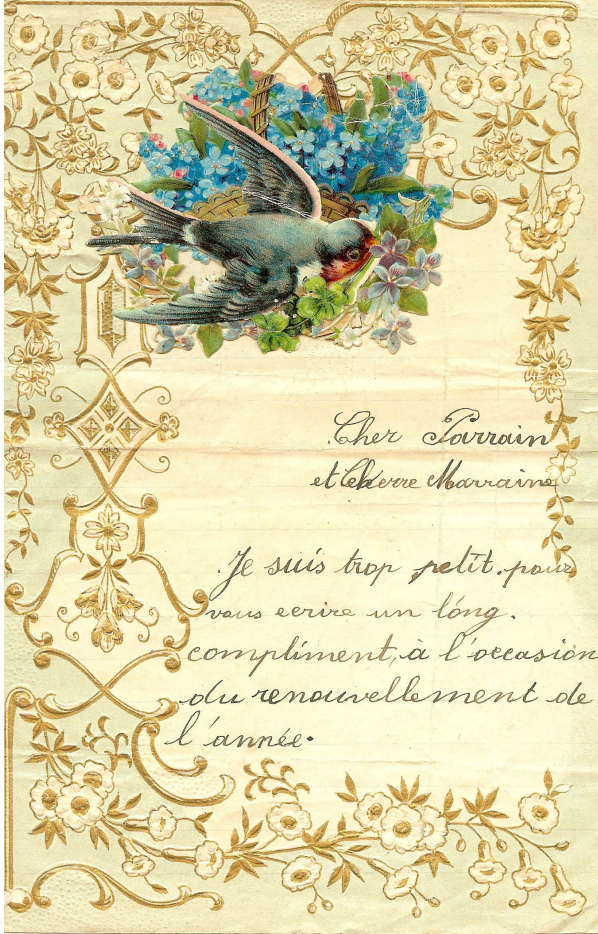 Cher Parrain
et Cherre Marraine
Je suis trop petit. pour
vous ecrire un lóng.
compliment, à l'occasion
du renouvellement de
l'année.